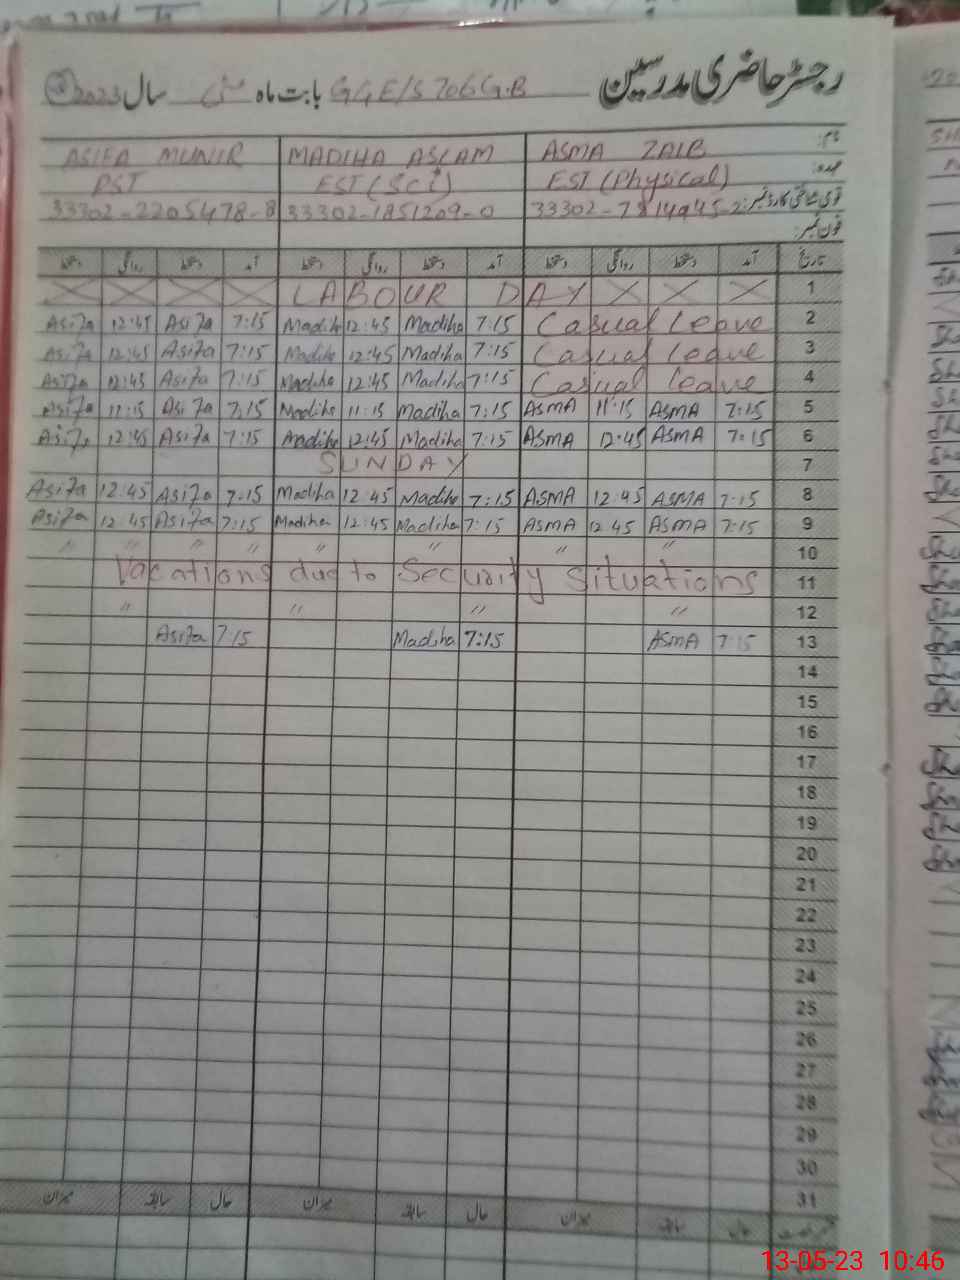 رجسٹر حاضری مدرسین بابت ماہ GGE/S 706 G.B مئی سال 2023
نام: ASMA ZAIB MADIHA ASLAM ASIFA MUNIR
عہدہ: EST (Physical) EST (Sci) PST
قومی شناختی کارڈ نمبر: 33302-7814945-2 33302-1851209-0 33302-2205478-8
فون نمبر:
تاریخ آمد دستخط روانگی دستخط آمد دستخط روانگی دستخط آمد دستخط روانگی دستخط
1 LABOUR DAY
2 Casual leave 7:15 Madiha 12:45 Madiha 7:15 Asifa 12:45 Asifa
3 Casual leave 7:15 Madiha 12:45 Madiha 7:15 Asifa 12:45 Asifa
4 Casual leave 7:15 Madiha 12:45 Madiha 7:15 Asifa 12:45 Asifa
5 7:15 ASMA 11:15 ASMA 7:15 Madiha 11:15 Madiha 7:15 Asifa 11:15 Asifa
6 7:15 ASMA 12:45 ASMA 7:15 Madiha 12:45 Madiha 7:15 Asifa 12:45 Asifa
7 SUNDAY
8 7:15 ASMA 12:45 ASMA 7:15 Madiha 12:45 Madiha 7:15 Asifa 12:45 Asifa
9 7:15 ASMA 12 45 ASMA 7:15 Madiha 12:45 Madiha 7:15 Asifa 12 45 Asifa
10 " " " " " " " "
11 Vacations due to Security Situations
12 " " " "
13 7:15 ASMA 7:15 Madiha 7:15 Asifa
14
15
16
17
18
19
20
21
22
23
24
25
26
27
28
29
30
31
حال سابقہ میزان حال سابقہ میزان حال سابقہ میزان
13-05-23 10:46